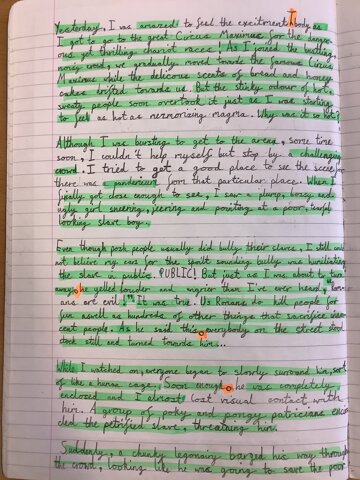 Yesterday, I was amazed to feel the excitement body as
I got to go to the great Circus Maximus for the dange-
ous yet thrilling chariot races! As I joined the bustling,
noisy crowd, we gradually moved towards the famous Circus
Maximus while the delicious scents of bread and honey
cakes drifted towards us. But the stinky odour of hot
sweaty people soon overtook it just as I was starting
to feel as hot as mezmorizing magma. Why was it so hot?
Although I was bursting to get to the arena, some time
soon, I couldn't help myself but stop by a challenging
crowd. I tried to get a good place to see the scene
there was for that particular place. When I
finally got close enough to see, I saw a plump, bossy and
ugly girl sneering, jeering and pointing at a poor, tearful
looking slave boy.
Even though posh people usually did bully their slaves, I still could
not believe my ears for the spoilt sounding bully was humiliating
the slave in public. PUBLIC! But just as I was about to turn
away, he yelled louder and angrier than I've ever heard, "Rom-
ans are evil!" It was true. Us Romans do kill people for
fun aswell as hundreds of other things that sacrifice inno-
cent people. As he said this, everybody on the street stood
stock still and turned towards him...
While I watched on, everyone began to slowly surround him, sort
of like a human cage. Soon enough, he was completely
enclosed and I almost lost visual contact with
him. A group of poky and pongy patricians encir-
cled the petrified slave, threatening him.
Suddenly, a chunky legionary barged his way through
the crowd, looking like he was going to save the poor